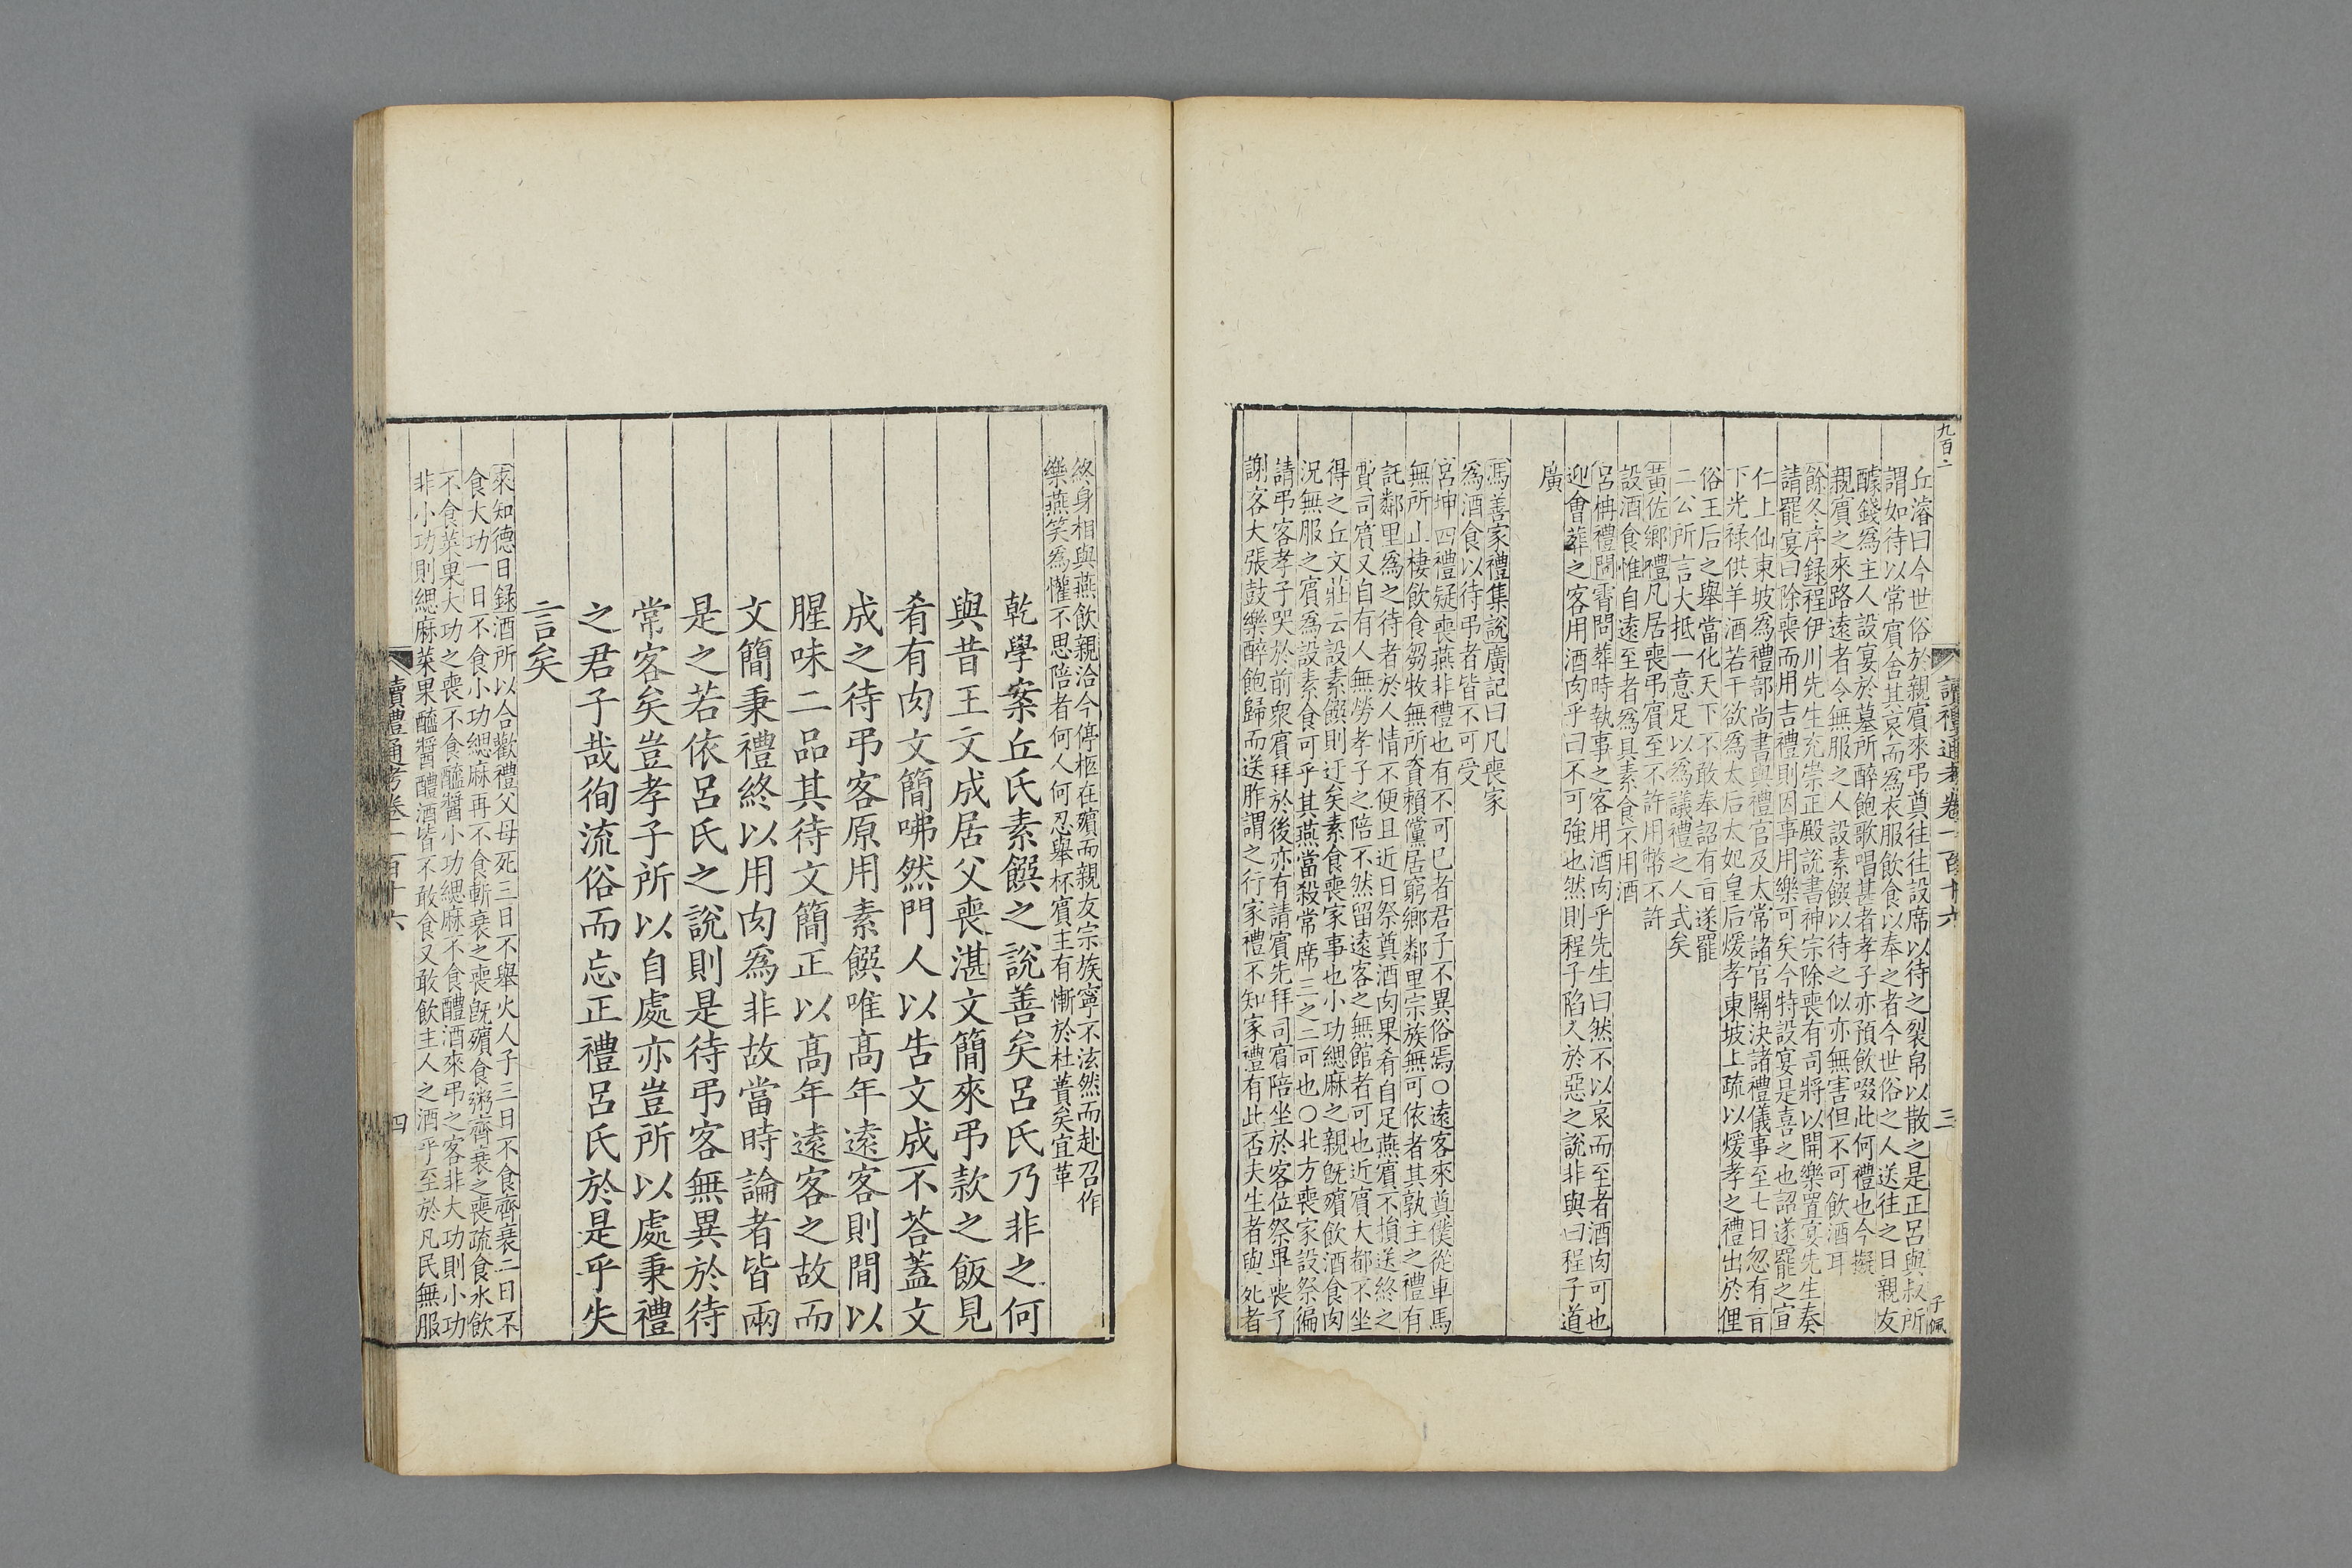 九百二
讀禮通考卷一百十六
三
子佩
丘濬曰今世俗於親賓來弔奠往往設席以待之裂帛以散之是正呂與叔所
謂如待以常賓舍其哀而爲衣服飲食以奉之者今世俗之人送往之日親友
醵錢爲主人設宴於墓所醉飽歌唱甚者孝子亦預飲啜此何禮也今擬
親賓之來路遠者令無服之人設素饌以待之似亦無害但不可飲酒耳
餘冬序録程伊川先生充崇正殿說書神宗除喪有司將以開樂置宴先生奏
請罷宴曰除喪而用吉禮則因事用樂可矣今特設宴是喜之也詔遂罷之宣
仁上仙東坡爲禮部尚書與禮官及太常諸官關決諸禮儀事至七日忽有旨
下光禄供羊酒若干欲爲太后太妃皇后煖孝東坡上疏以煖孝之禮出於俚
俗王后之舉當化天下不敢奉詔有旨遂罷
二公所言大抵一意足以爲議禮之人式矣
黃佐鄉禮凡居喪弔賓至不許用幣不許
設酒食惟自遠至者爲具素食不用酒
呂柟禮問霄問葬時執事之客用酒肉乎先生曰然不以哀而至者酒肉可也
迎會葬之客用酒肉乎曰不可強也然則程子陷人於惡之說非與曰程子道
廣
馮善家禮集說廣記曰凡喪家
爲酒食以待弔者皆不可受
呂坤四禮疑喪燕非禮也有不可已者君子不異俗焉○遠客來奠僕從車馬
無所止棲飲食芻牧無所資賴儻居窮鄉鄰里宗族無可依者其孰主之禮有
託鄰里爲之待者於人情不便且近日祭奠酒肉果肴自足燕賓不損送終之
費司賓又自有人無勞孝子之陪不然留遠客之無館者可也近賓大都不坐
得之丘文莊云設素饌則迂矣素食喪家事也小功緦麻之親旣殯飲酒食肉
況無服之賓爲設素食可乎其燕當殺常席三之二可也○北方喪家設祭徧
請弔客孝子哭於前衆賓拜於後亦有請賓先拜司賓陪坐於客位祭畢喪了
謝客大張鼓樂醉飽歸而送胙謂之行家禮不知家禮有此否夫生者與死者
終身相與燕飲親洽今停柩在殯而親友宗族寧不泫然而赴召作
樂燕笑爲懽不思陪者何人何忍舉杯賓主有慚於杜蕢矣宜革
乾學案丘氏素饌之說善矣呂氏乃非之何
與昔王文成居父喪湛文簡來弔款之飯見
肴有肉文簡咈然門人以告文成不荅蓋文
成之待弔客原用素饌唯高年遠客則間以
腥味二品其待文簡正以高年遠客之故而
文簡秉禮終以用肉爲非故當時論者皆兩
是之若依呂氏之說則是待弔客無異於待
常客矣豈孝子所以自處亦豈所以處秉禮
之君子哉徇流俗而忘正禮呂氏於是乎失
言矣
來知德日録酒所以合歡禮父母死三日不舉火人子三日不食齊衰二日不
食大功一日不食小功緦麻再不食斬衰之喪旣殯食粥齊衰之喪疏食水飲
不食菜果大功之喪不食醯醬小功緦麻不食醴酒來弔之客非大功則小功
非小功則緦麻菜果醯醬醴酒皆不敢食又敢飲主人之酒乎至於凡民無服
讀禮通考卷一百十六
四